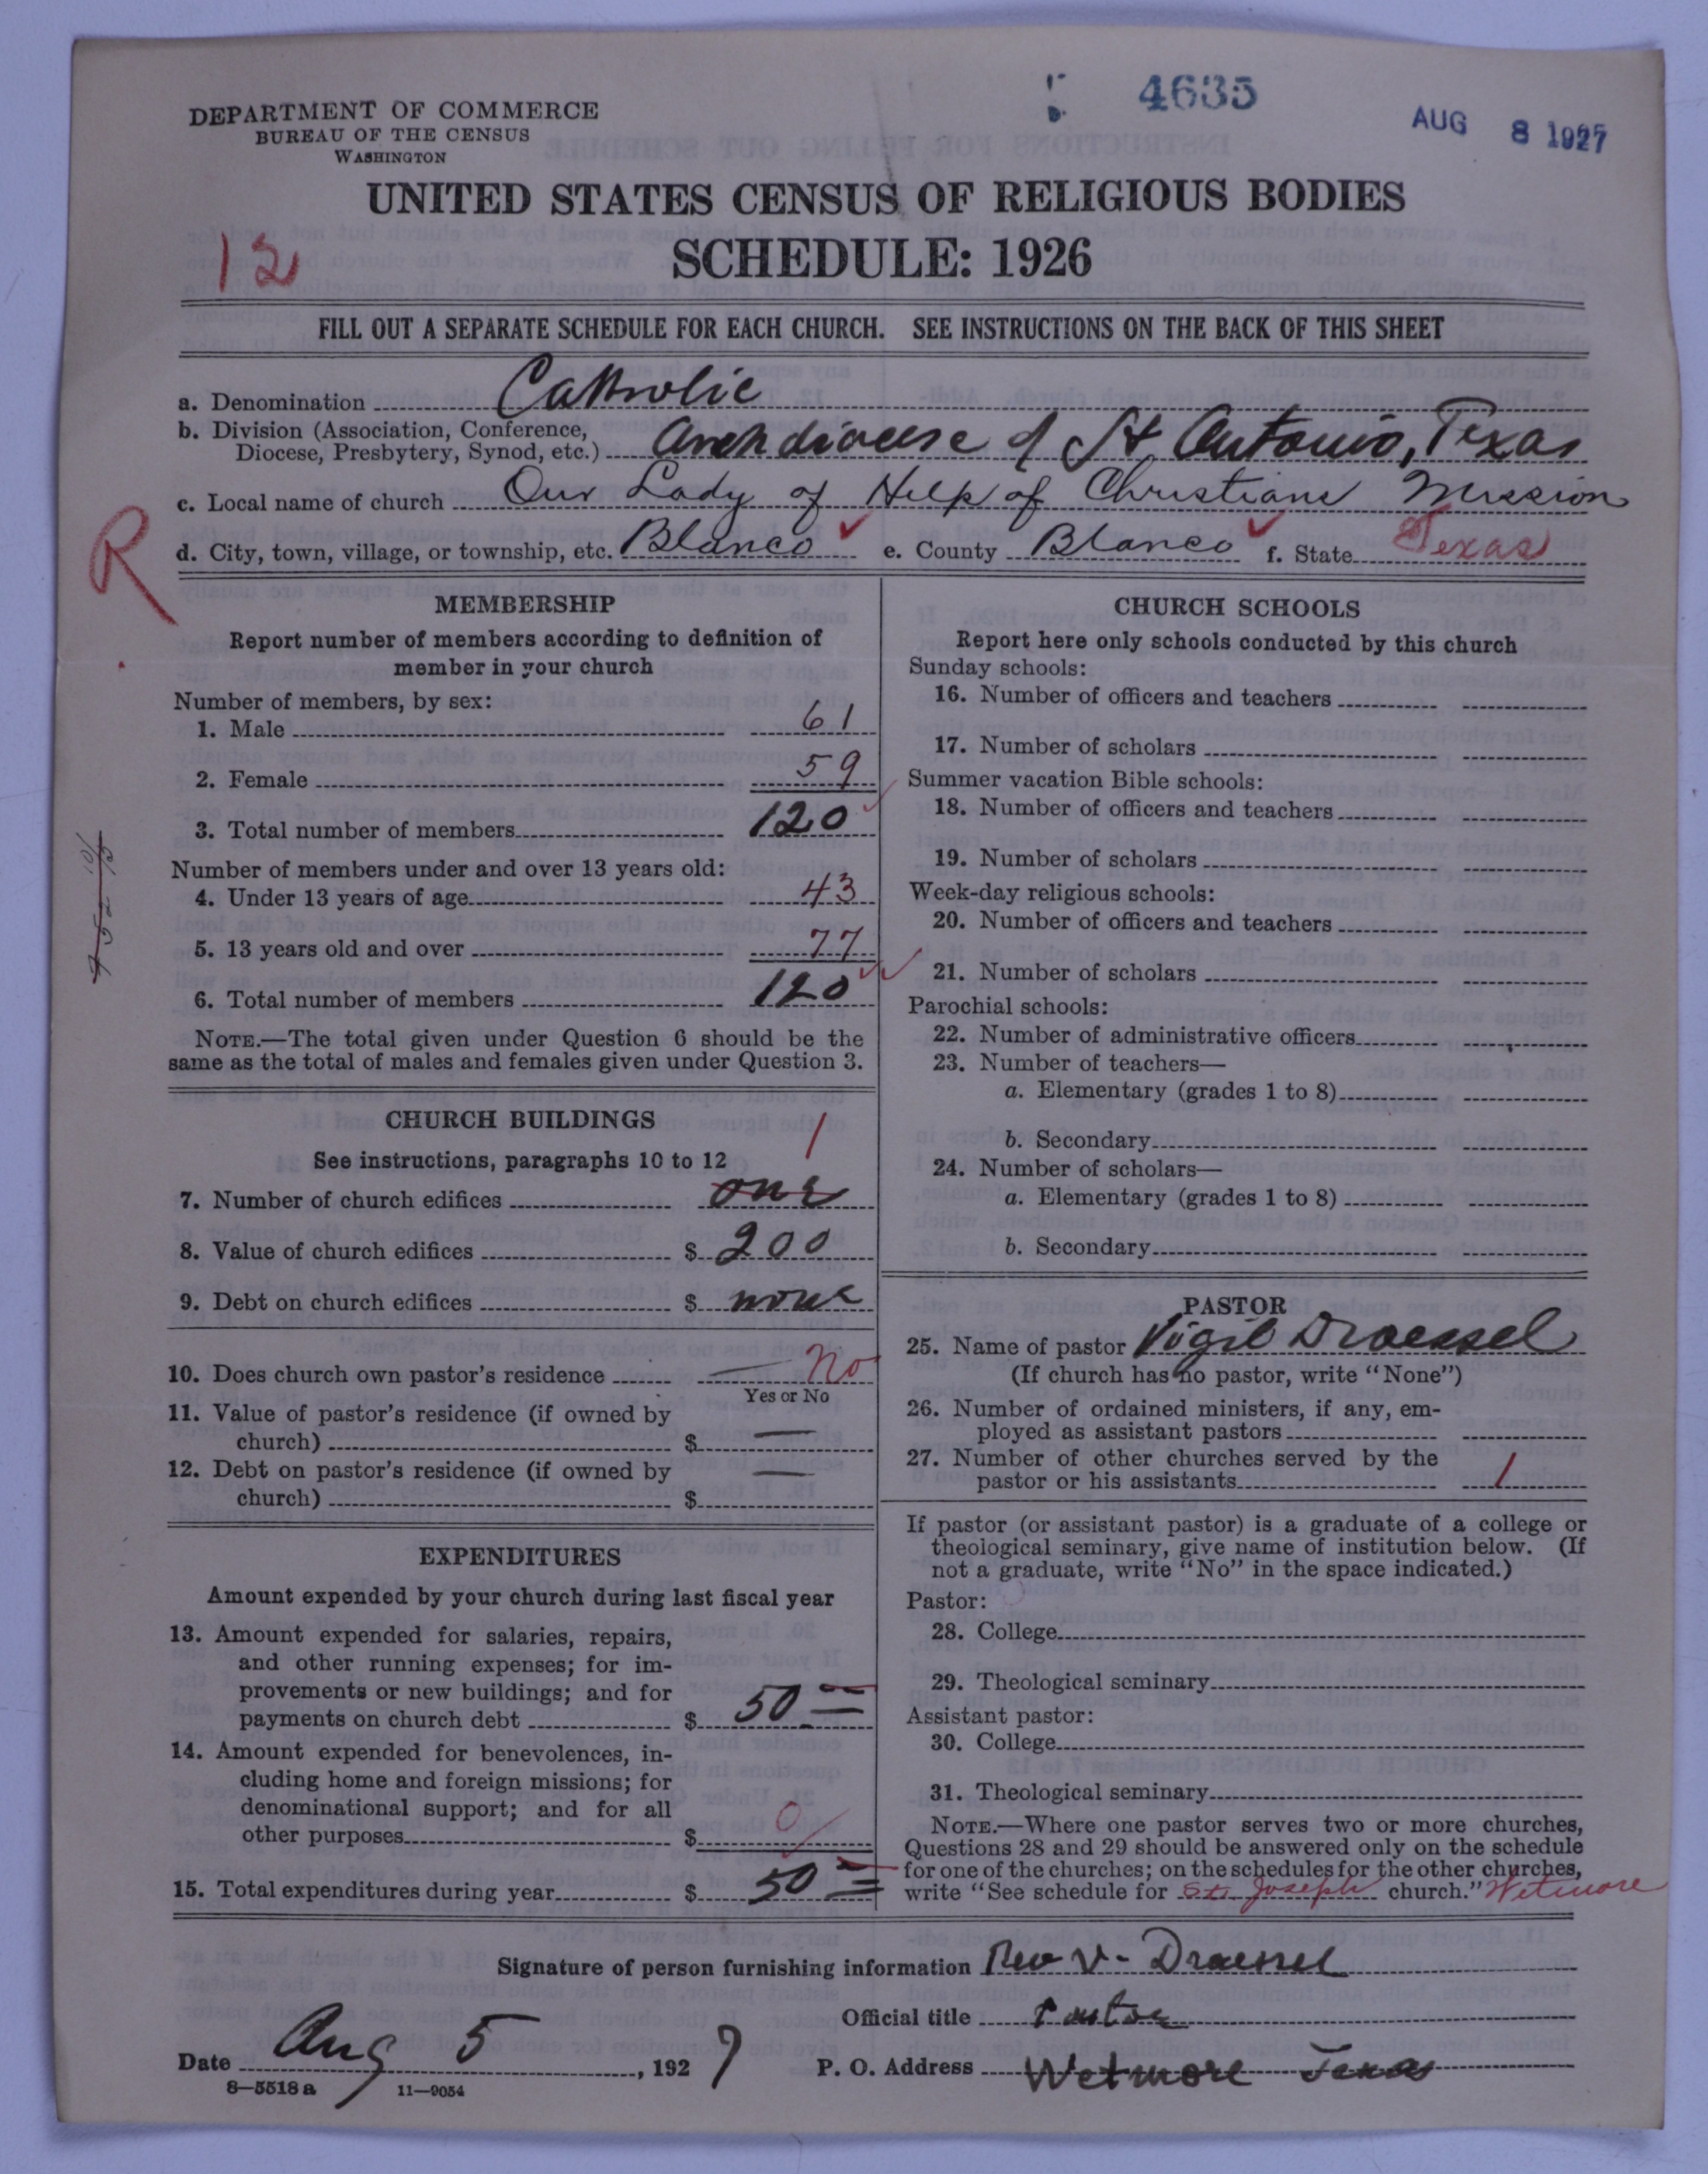 4635
AUG 8 1927
DEPARTMENT OF COMMERCE
BUREAU OF THE CENSUS
WASHINGTON
UNITED STATES CENSUS OF RELIGIOUS BODIES
SCHEDULE: 1926
12
FILL OUT A SEPARATE SCHEDULE FOR EACH CHURCH. SEE INSTRUCTIONS ON THE BACK OF THIS SHEET
a. Denomination Catholic
b. Division (Association, Conference,
Diocese, Presbytery, Synod, etc.) Archdiocese of St Antonio, Texas
c. Local name of church Our Lady of Help of Christians Mission
R
d. City, town, village, or township, etc. Blanco e. County Blanco f. State Texas
MEMBERSHIP
Report number of members according to definition of
member in your church
Number of members, by sex:
1. Male 61
2. Female 59
3. Total number of members 120
Number of members under and over 13 years old:
4. Under 13 years of age 43
5. 13 years old and over 77
6. Total number of members 120
NOTE.—The total given under Question 6 should be the
same as the total of males and females given under Question 3.
CHURCH BUILDINGS
See instructions, paragraphs 10 to 12
1
7. Number of church edifices one
8. Value of church edifices $ 200
9. Debt on church edifices $ none
10. Does church own pastor's residence — No
Yes or No
11. Value of pastor's residence (if owned by
church) $ —
12. Debt on pastor's residence (if owned by
church) $ —
EXPENDITURES
Amount expended by your church during last fiscal year
13. Amount expended for salaries, repairs,
and other running expenses; for im-
provements or new buildings; and for
payments on church debt $ 50
14. Amount expended for benevolences, in-
cluding home and foreign missions; for
denominational support; and for all
other purposes $ 0
15. Total expenditures during year $ 50
CHURCH SCHOOLS
Report here only schools conducted by this church
Sunday schools:
16. Number of officers and teachers
17. Number of scholars
Summer vacation Bible schools:
18. Number of officers and teachers
19. Number of scholars
Week-day religious schools:
20. Number of officers and teachers
21. Number of scholars
Parochial schools:
22. Number of administrative officers
23. Number of teachers—
a. Elementary (grades 1 to 8)
b. Secondary
24. Number of scholars—
a. Elementary (grades 1 to 8)
b. Secondary
PASTOR
25. Name of pastor Vigil Draessel
(If church has no pastor, write "None")
26. Number of ordained ministers, if any, em-
ployed as assistant pastors
27. Number of other churches served by the
pastor or his assistants 1
If pastor (or assistant pastor) is a graduate of a college or
theological seminary, give name of institution below. (If
not a graduate, write "No" in the space indicated.)
Pastor:
28. College
29. Theological seminary
Assistant pastor:
30. College
31. Theological seminary
NOTE.—Where one pastor serves two or more churches,
Questions 28 and 29 should be answered only on the schedule
for one of the churches; on the schedules for the other churches,
write "See schedule for St. Joseph church." Wetmore
Signature of person furnishing information Rev V- Draessel
Official title Pastor
Date Aug 5, 1927 P. O. Address Wetmore Texas
8—5518 a 11—9054